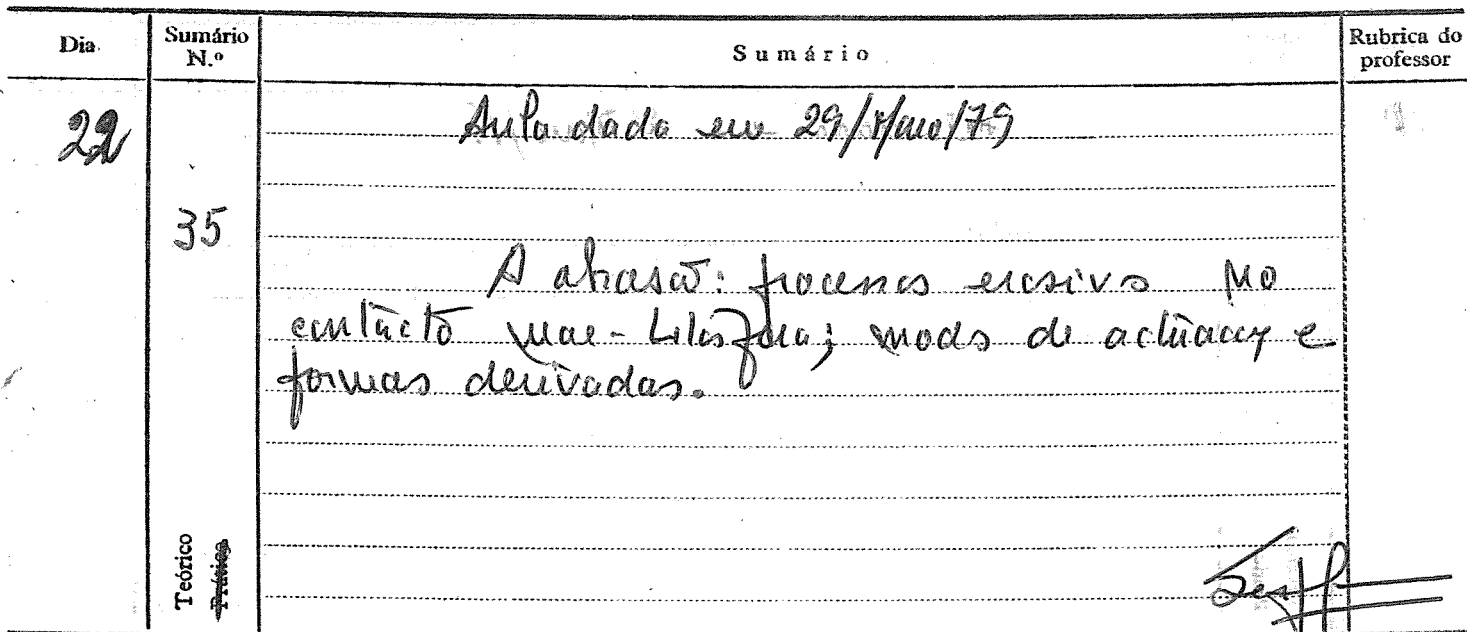 Dia
Sumário N.º
Sumário
Rubrica do professor
22
Aula dada em 29/Maio/79
35
A abrasão: processo erosivo no
contacto mar-Litosfera; modo de actuação e
formas derivadas.
Teórico
Prático